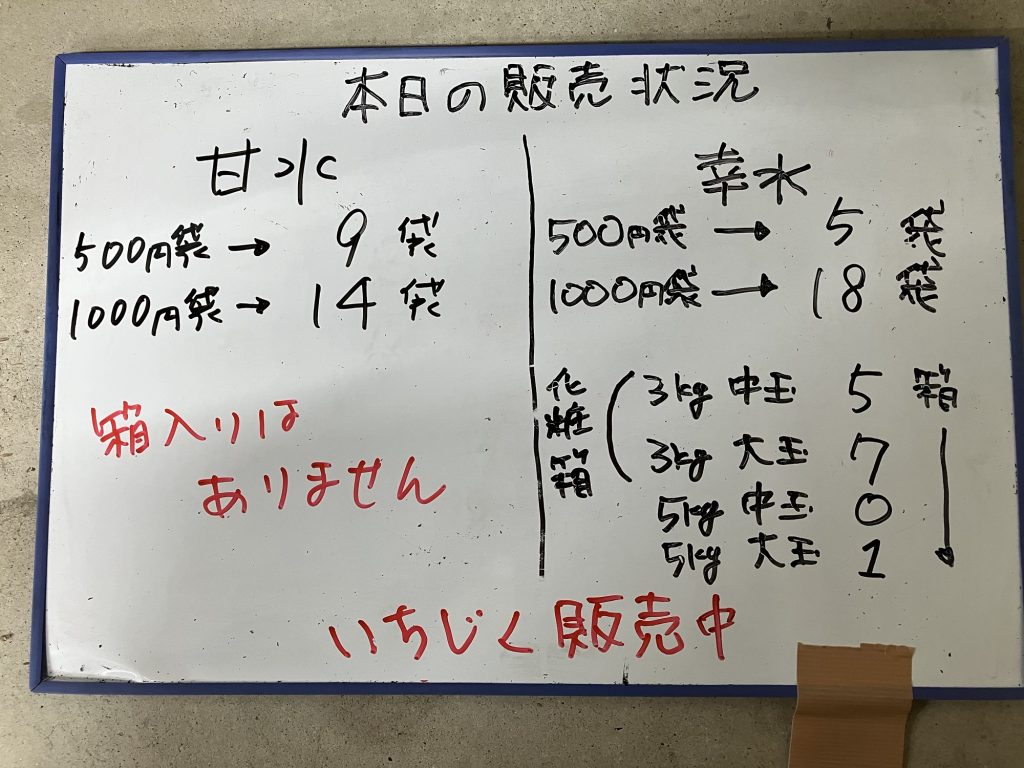 本日の販売状況
甘水
500円袋→ 9 袋
1000円袋→ 14 袋
箱入りは
ありません
幸水
500円袋→ 5 袋
1000円袋→ 18 袋
化粧箱
3kg 中玉 5 箱
3kg 大玉 7
5kg 中玉 0
5kg 大玉 1
いちじく販売中